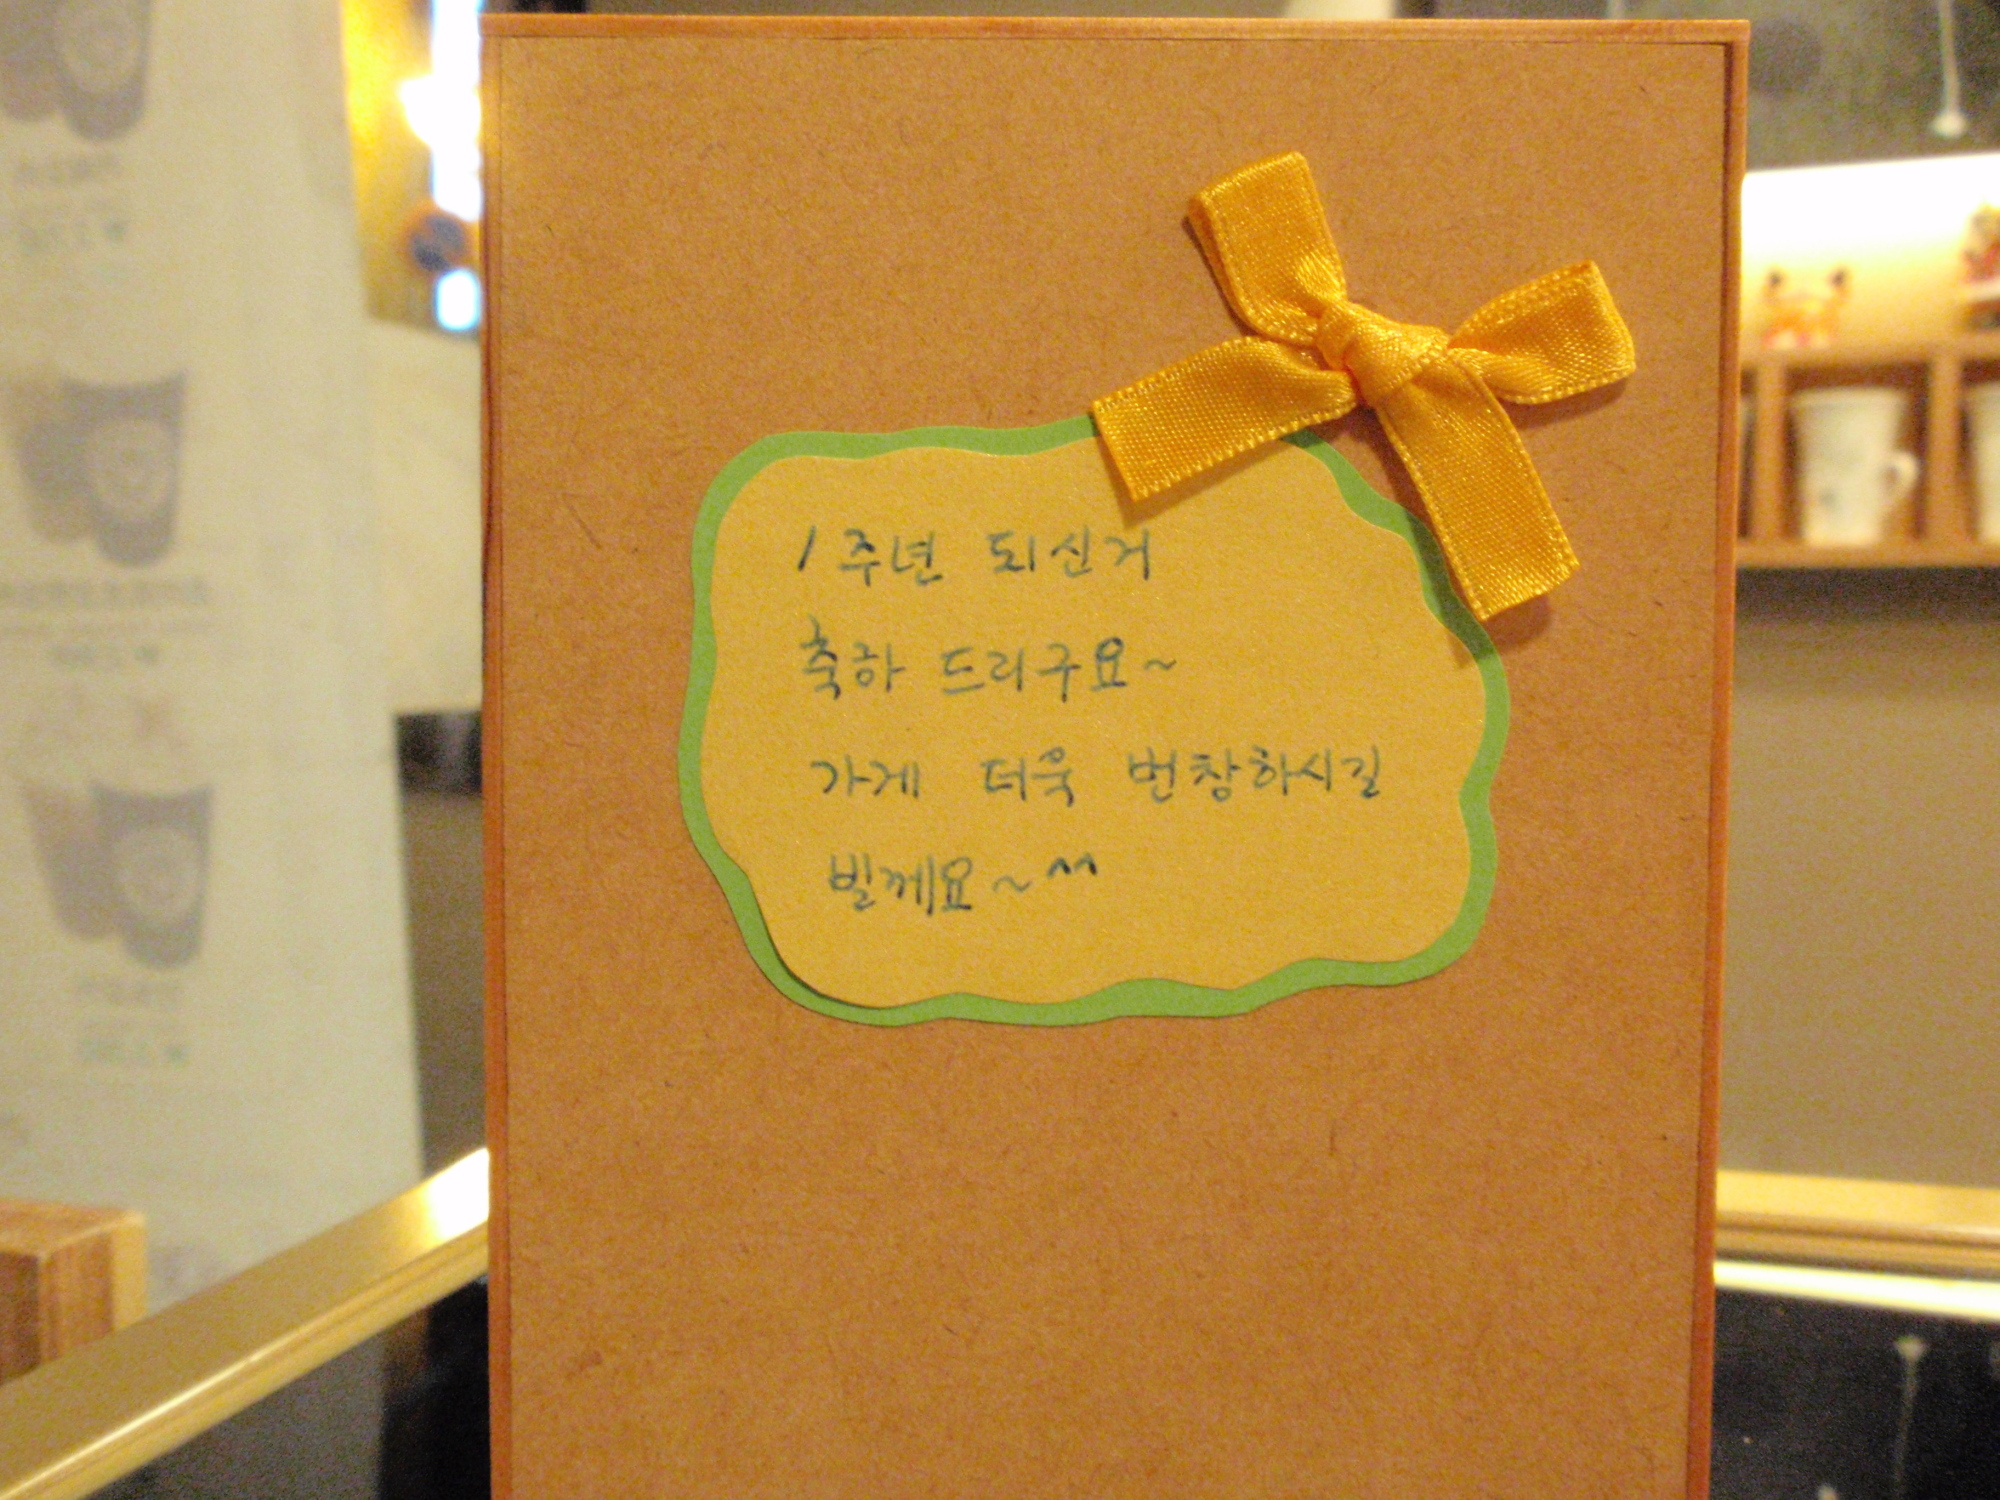 1주년 되신거
축하 드리구요~
가게 더욱 번창하시길
빌께요~^^